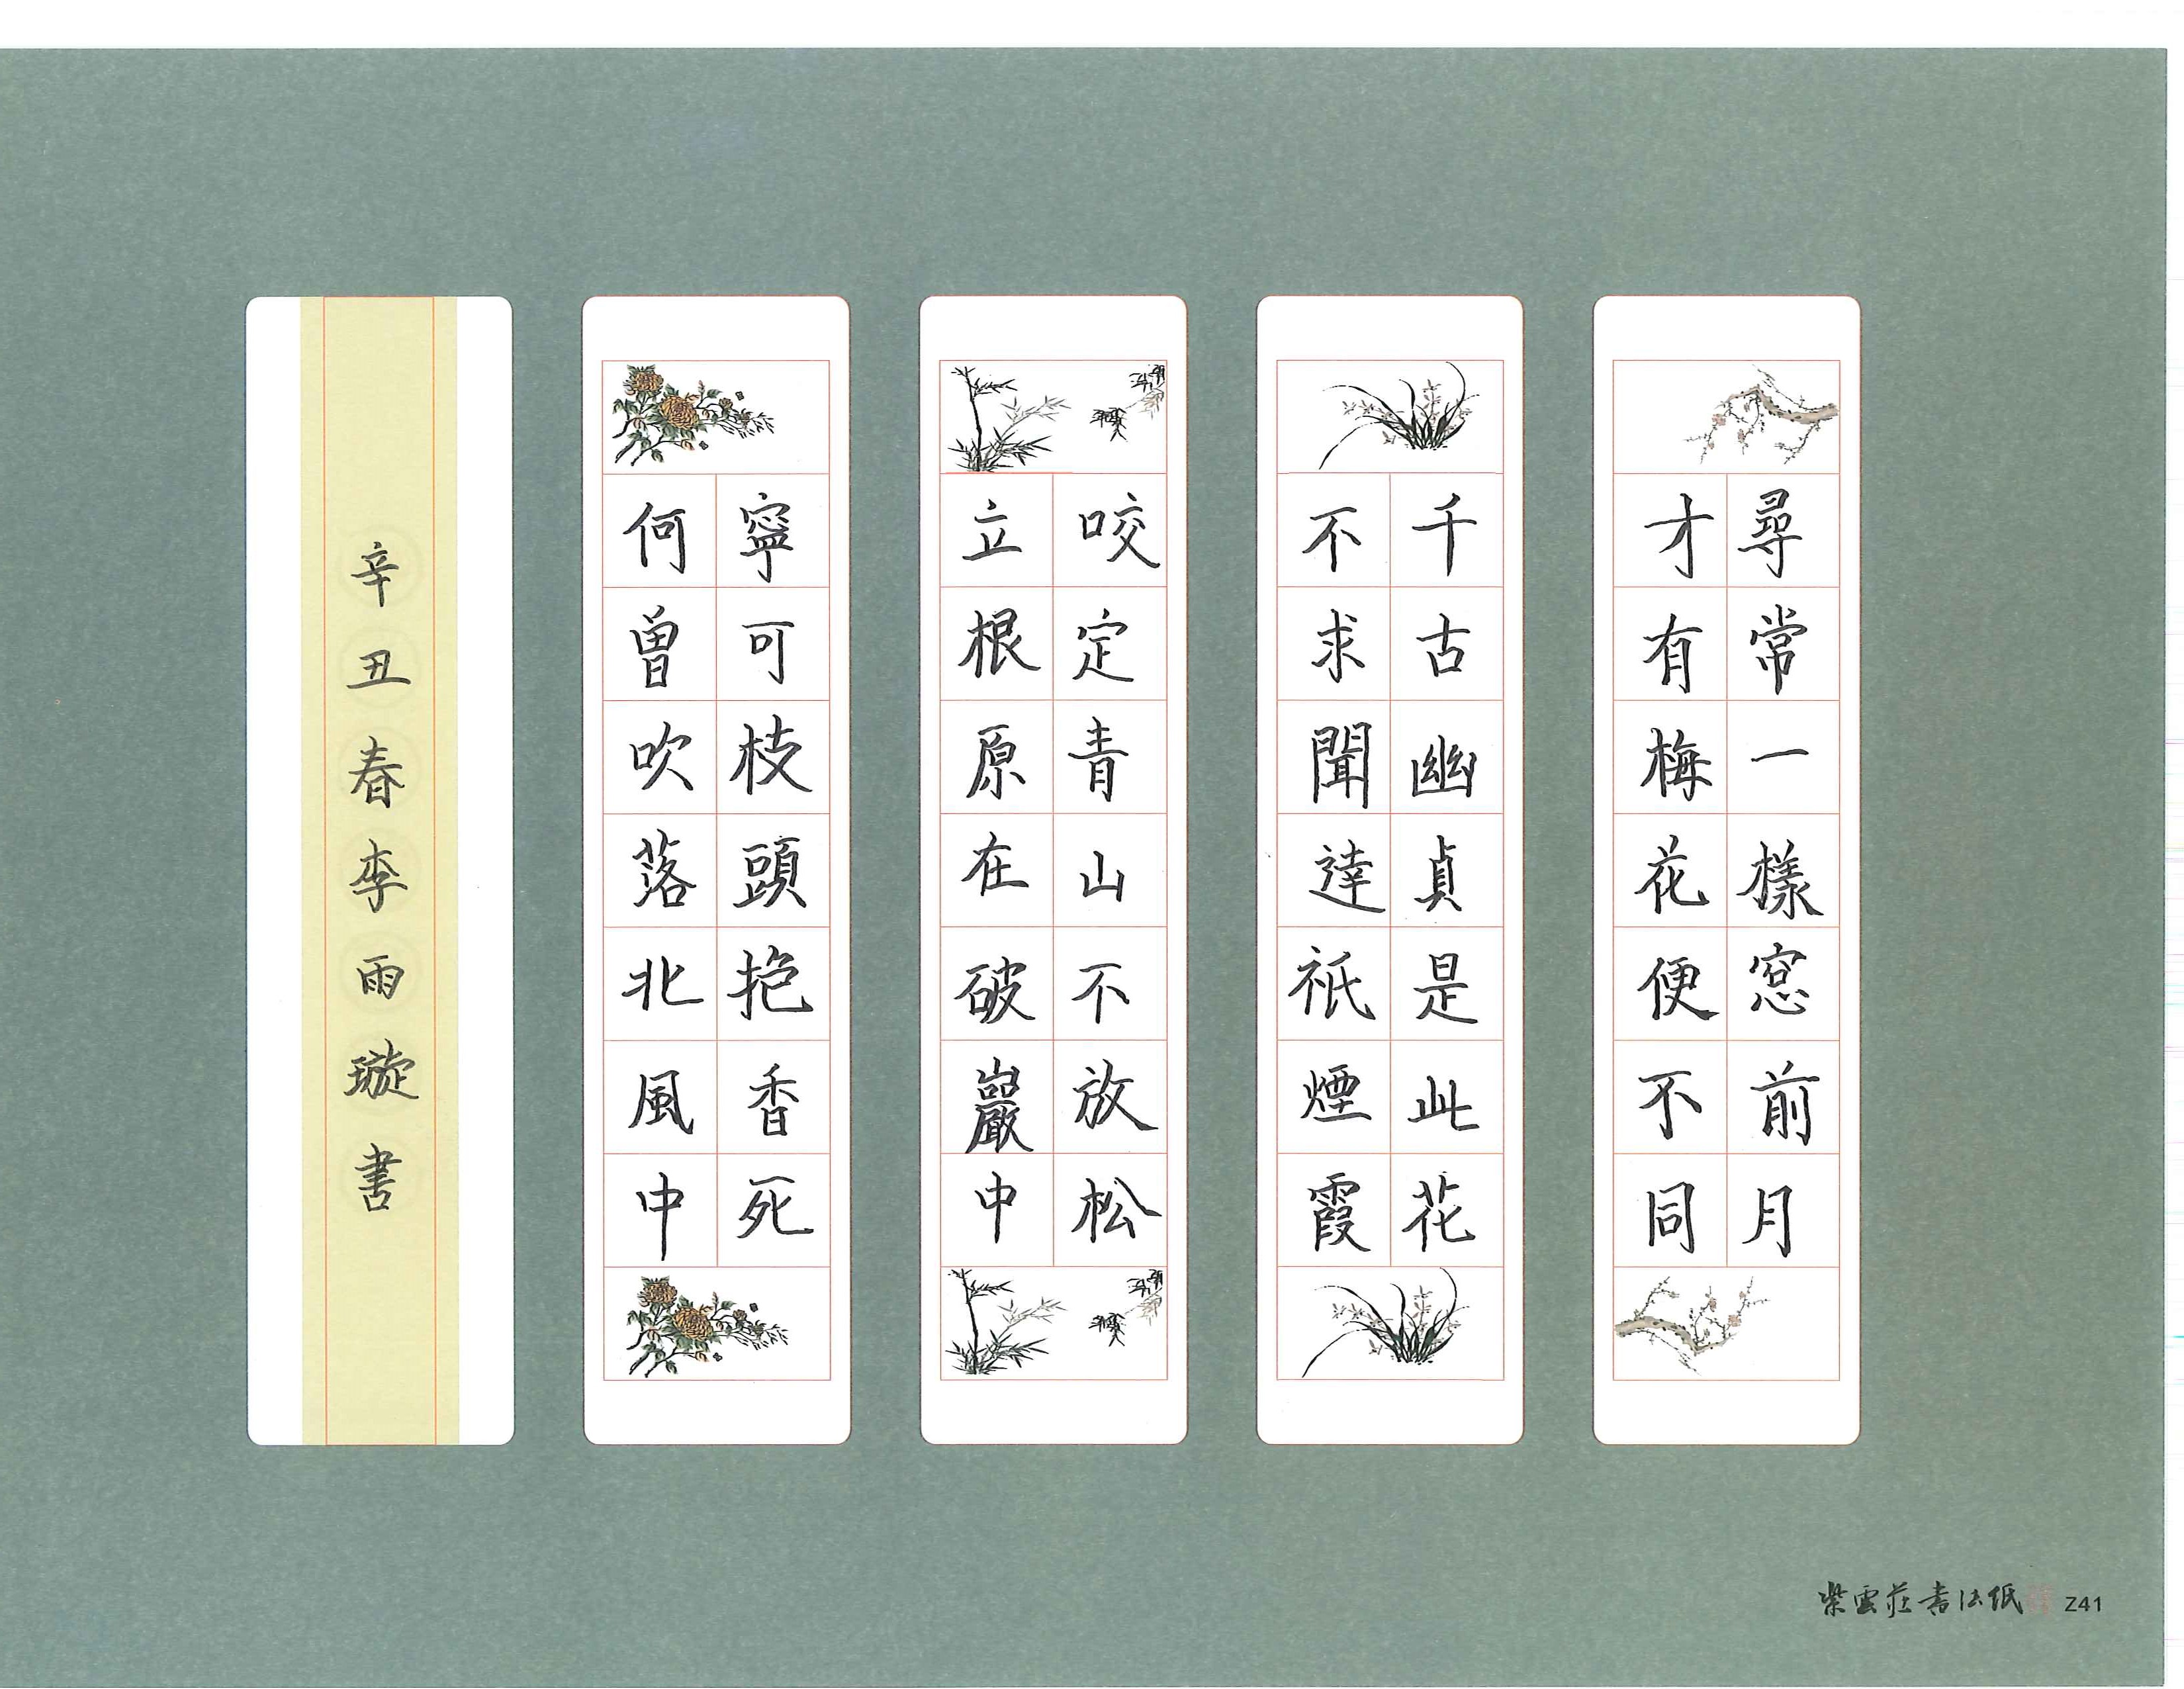 尋常一樣窓前月
才有梅花便不同
千古幽貞是此花
不求聞達祇煙霞
咬定青山不放松
立根原在破巖中
寧可枝頭抱香死
何曾吹落北風中
辛丑春李雨璇書
紫雲莊書法紙 Z41